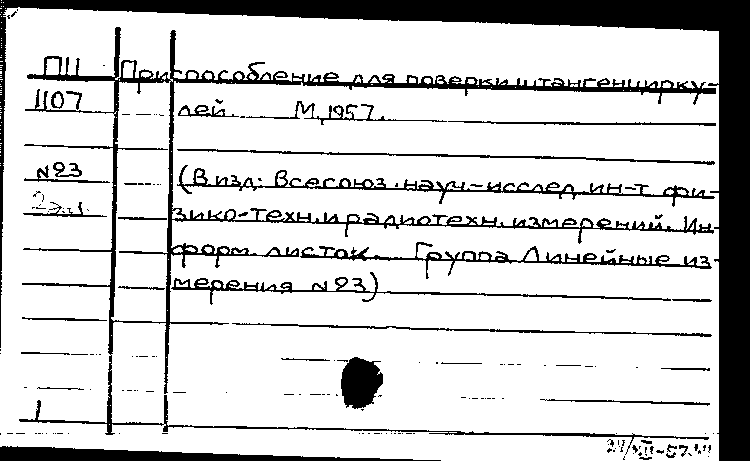 П11 Приспособление для поверки штангенцирку-
1107 лей. М, 1957.
№23 (В изд: Всесоюз. науч-исслед. ин-т фи-
2 экз. зико-техн. и радиотехн. измерений. Ин-
форм. листок. Группа Линейные из-
мерения №23)
1